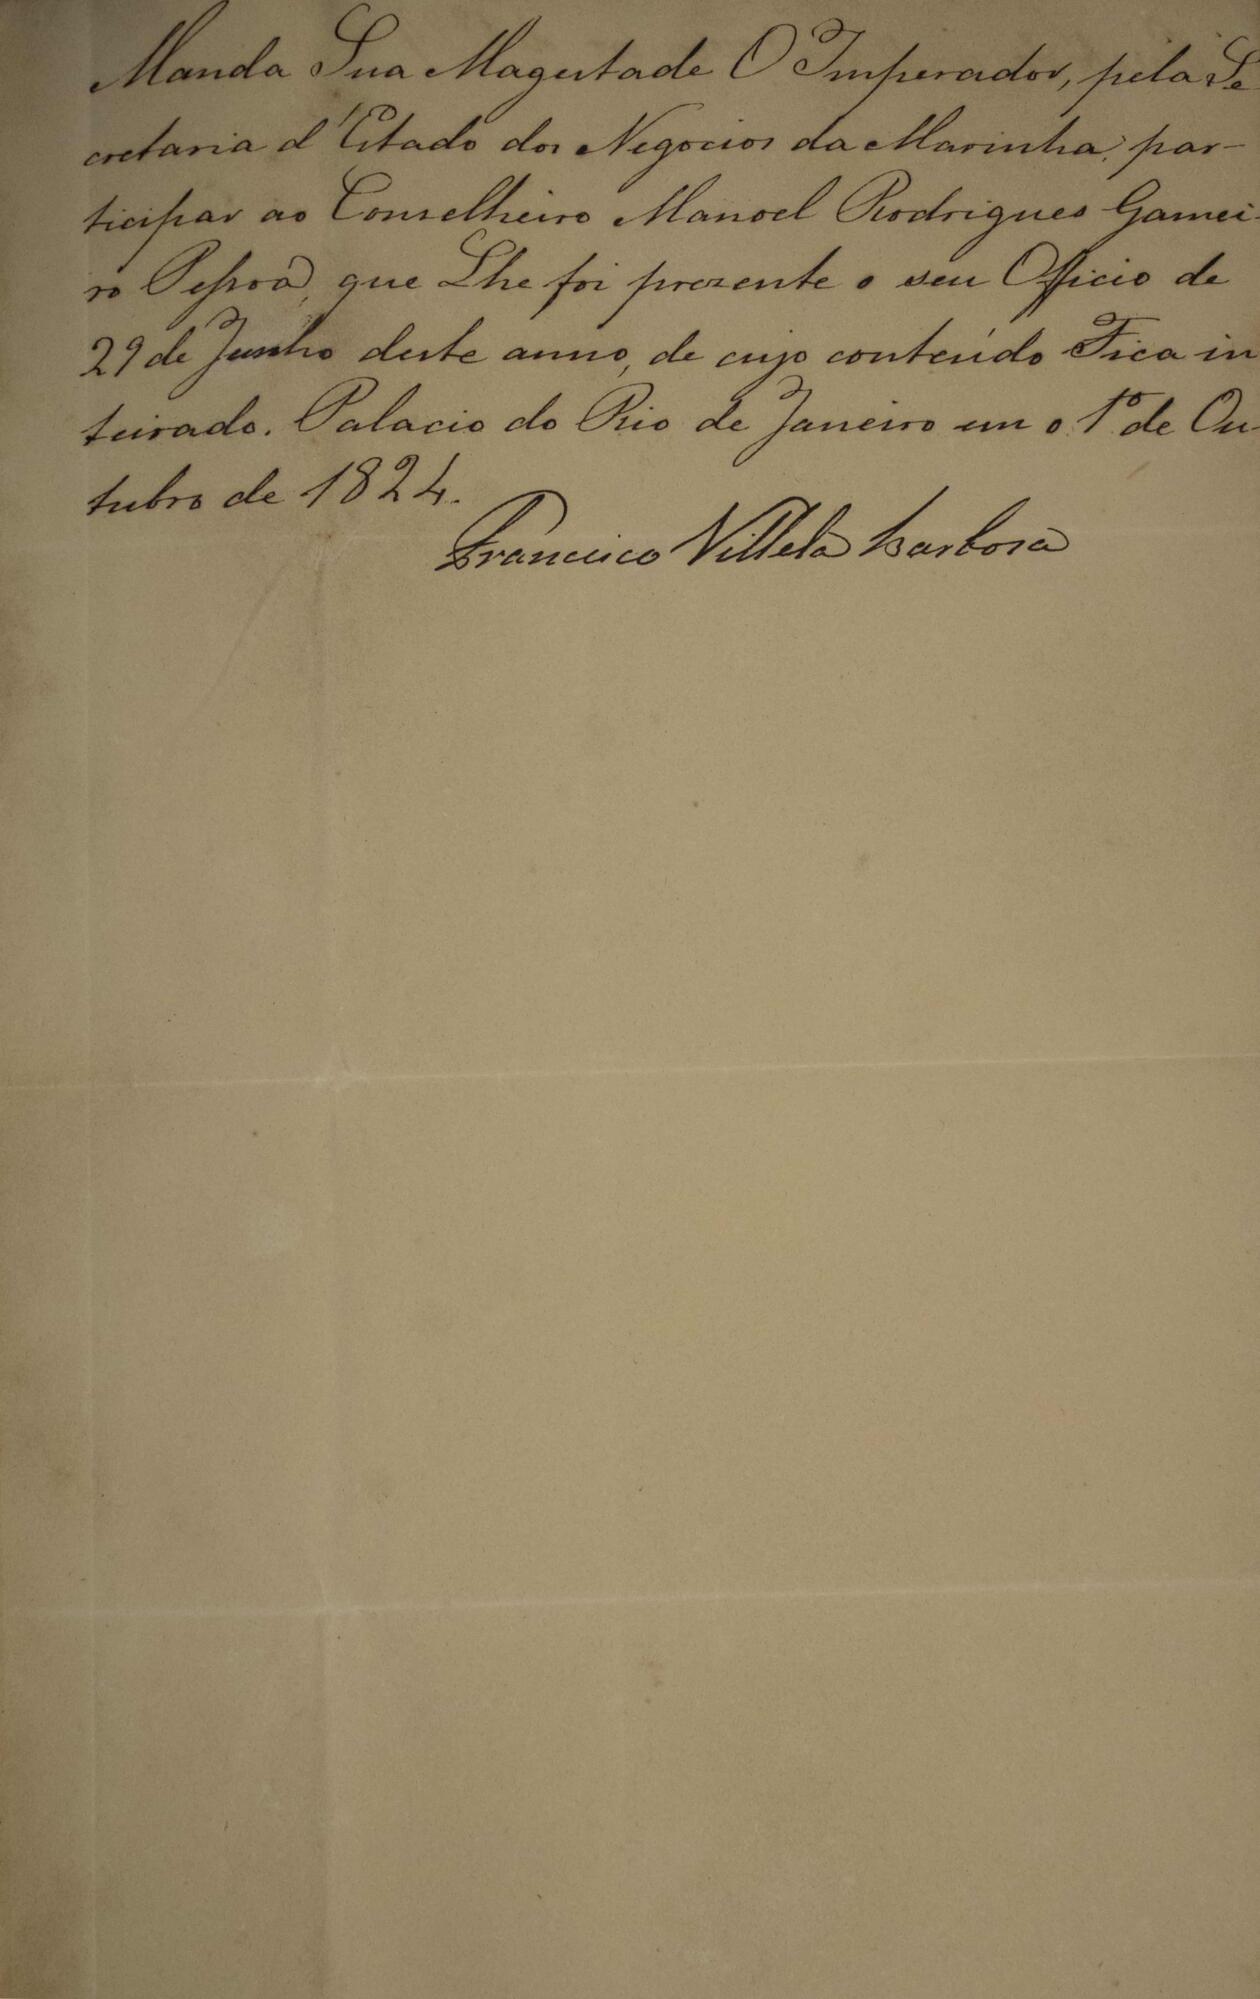 Manda Sua Magestade O Imperador, pela Se
cretaria d'Estado dos Negocios da Marinha, par-
ticipar ao Conselheiro Manoel Rodrigues Gamei-
ro Pessoa, que Lhe foi prezente o seu Officio de
29 de Junho deste anno, de cujo conteúdo Fica in
teirado. Palacio do Rio de Janeiro em o 1º de Ou-
tubro de 1824.
Francisco Villela Barbosa